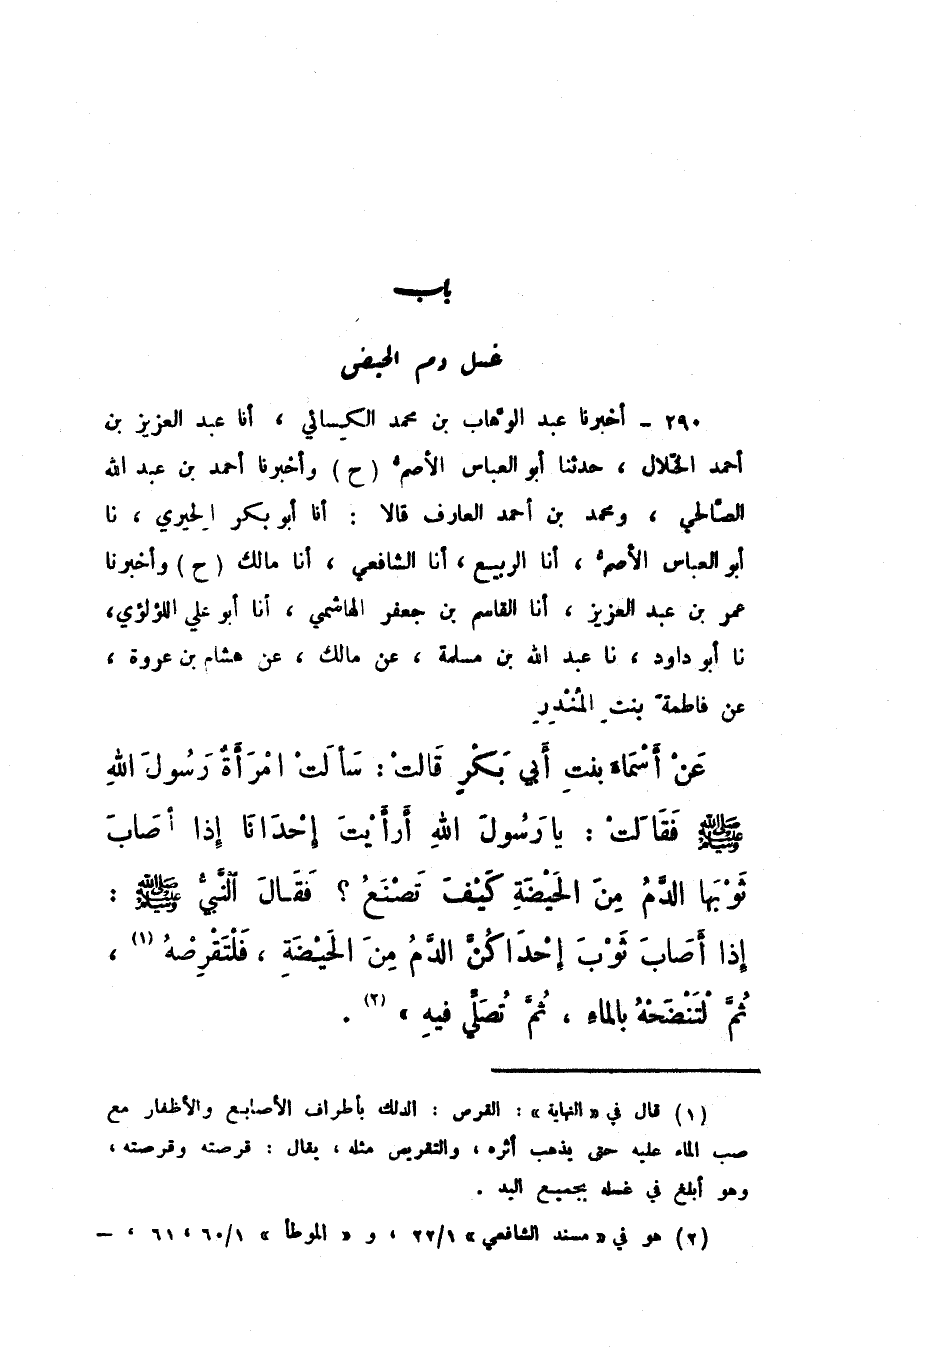 باب
غسل دم الحيض
٢٩٠ ـ أخبرنا عبد الوهّاب بن محمد الكيسائي ، أنا عبد العزيز بن
أحمد الخلّال ، حدثنا أبو العباس الأصمُّ ( ح ) وأخبرنا أحمد بن عبد الله
الصّالحي ، ومحمد بن أحمد العارف قالا : أنا أبو بكر الحِيري ، نا
أبو العباس الأصمُّ ، أنا الربيع ، أنا الشافعي ، أنا مالك ( ح ) وأخبرنا
عمر بن عبد العزيز ، أنا القاسم بن جعفر الهاشمي ، أنا أبو علي اللؤلؤي ،
نا أبو داود ، نا عبد الله بن مسلمة ، عن مالك ، عن هشام بن عروة ،
عن فاطمةَ بنتِ المُنْذِرِ
عَنْ أَسْمَاءَ بنتِ أَبي بَكْرٍ قَالتْ : سَأَلَتْ امْرَأَةٌ رَسُولَ اللهِ
ﷺ فَقَالَتْ : يا رَسُولَ اللهِ أَرأَيْتَ إِحْدَانَا إِذا أَصَابَ
ثَوْبَها الدَّمُ مِنَ الحَيْضَةِ كَيْفَ تَصْنَعُ ؟ فَقَالَ النَّبيُّ ﷺ :
إِذا أَصَابَ ثَوْبَ إِحْدَاكُنَّ الدَّمُ مِنَ الحَيْضَةِ ، فَلْتَقْرِصْهُ (١) ،
ثُمَّ لْتَنْضَحْهُ بالماءِ ، ثُمَّ تُصَلِّي فيهِ » (٢) .
(١) قال في « النهاية » : القرص : الدلك بأطراف الأصابع والأظفار مع
صب الماء عليه حتى يذهب أثره ، والتقريص مثله ، يقال : قرصته وقرصته ،
وهو أبلغ في غسله بجميع اليد .
(٢) هو في « مسند الشافعي » ٢٢/١ ، و « الموطأ » ٦٠/١ ، ٦١ ، ـ